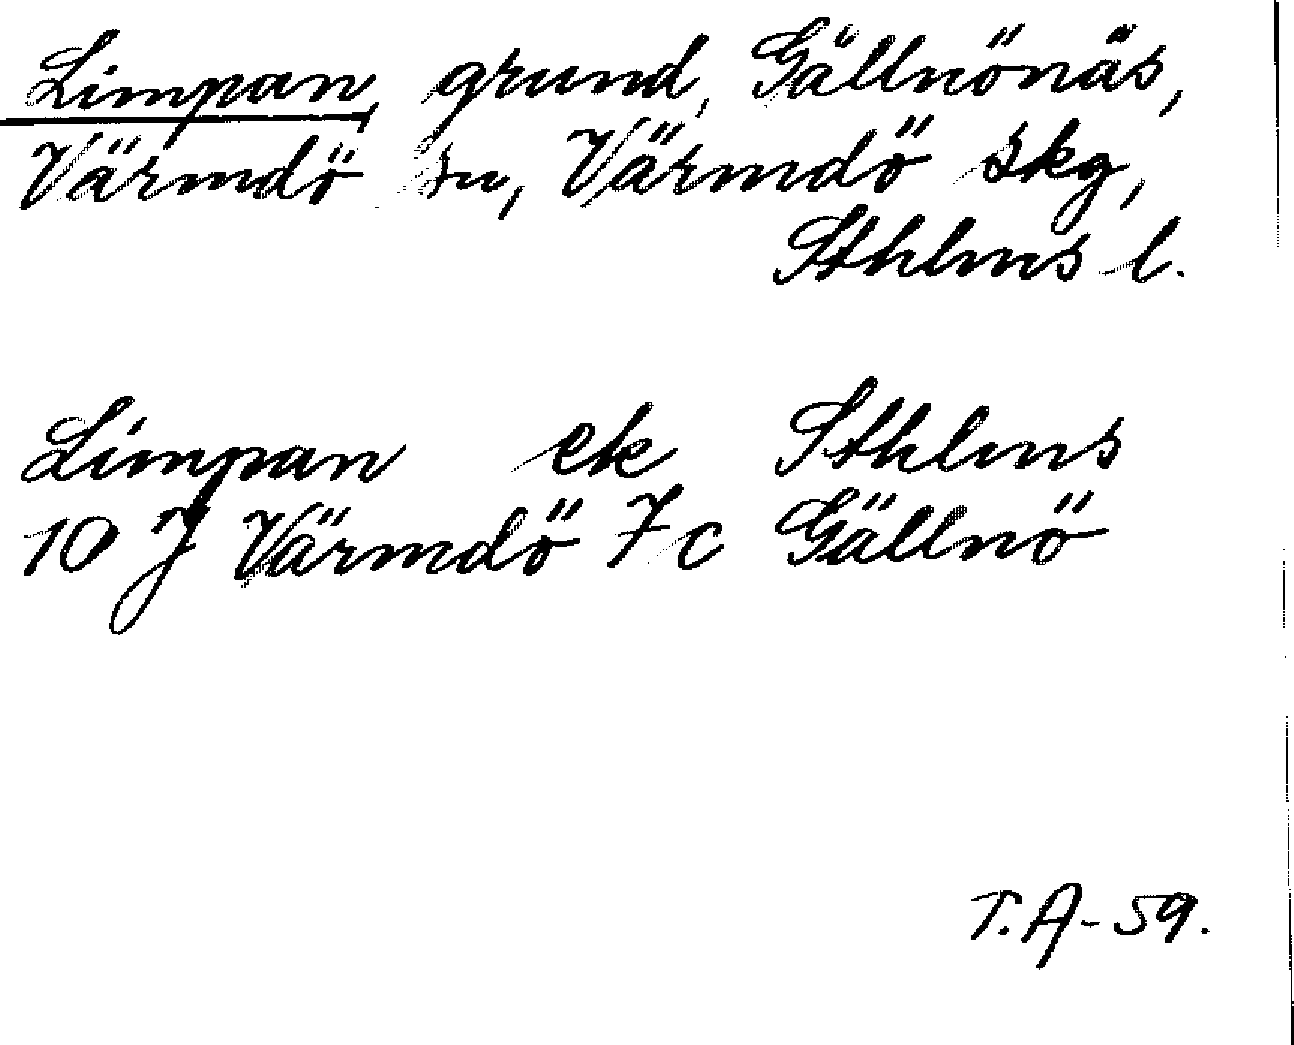 Limpan, grund, Gällnönäs,
Värmdö sn, Värmdö skg,
Sthlms l.
Limpan ek Sthlms
10 J Värmdö 7c Gällnö
T.A-59.